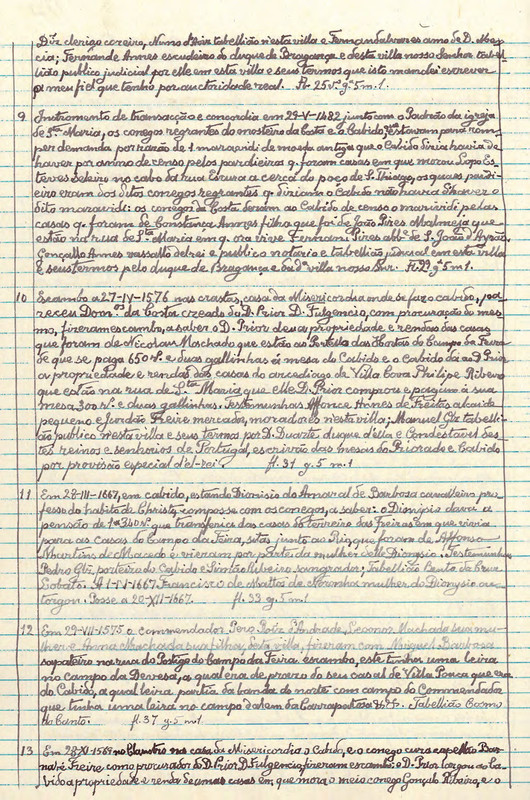 Diz clerigo coreiro, Nuno Alvrz tabellião n'esta villa e Fernandalvares amo de D. Mecia; Fernande Annes escudeiro do duque de Bragança e desta villa nosso Senhor tabellião publico judicial por elle em esta villa e seus termos que isto mandei escrever
a meu fiel que tenho por auctoridade real. Fl. 25 vº g. 5 m. 1.
9 Instromento de transacção e concordia em 29-V-1482 junto com o Padrão da igreja
de Sta Maria, os conegos regrantes do mosteiro da Costa e o Cabido, que estavam para romper demanda por razão de 1 maravidi de moeda antiga que o Cabido diria havia de
haver por anno de censo pelos pardieiros q. foram casas em que morou Lopo Esteves
no cabo da rua a cerca do poço de S. Thiago, os quaes pardieiro eram dos ditos conegos regrantes q. diziam o Cabido não havia de haver o
dito maravidi: os conegos da Costa deram ao Cabido de censo o maravidi pelas
casas q. foram de Constança Annes filha que foi de João Pires Malmeja que
estão na rua de Sta Maria em q. ora vive Fernam Pires abbe de S. João d'Ayrão.
Gonçallo Annes vassallo del rei e publico notario e tabellião judicial em esta villa
e seus termos pelo duque de Bragança e da dª villa nosso Snr. Fl. 99 g. 5 m. 1.
10 Escambo a 27-IV-1576 nas crastas, casa da Misericordia onde se faz o cabido, pareceu Domos da Costa creado do D. Prior D. Fulgencio, com procuração do mesmo, fizeram escambo, a saber o D. Prior deu a propriedade e rendas das casas
que foram de Nicolau Machado que estão ao Postello das Hortas do Campo da Feira
de que se paga 650 rs. e duas gallinhas á mesa do Cabido e o Cabido dá ao D. Prior
a propriedade e rendas das casas do arcediago de Villa Cova Philipe Ribeiro
que estão na rua de Sta Maria que elle D. Prior comprou e pagam á sua
mesa 300 rs. e duas gallinhas. Testemunhas Affonce Annes de Freitas alcaide
pequeno e Jordão Freire mercador, moradores n'esta villa; Manuel Glz tabellião publico n'esta villa e seus termos por D. Duarte, duque d'ella e Condestavel destes reinos e senhorios de Portugal, escrivão das mesas do Priorade e Cabido
por provisão especial d'el-rei. fl. 31 g. 5 m. 1
11 Em 28-III-1667, em cabido, estando Dionisio do Amaral de Barbosa cavalleiro professo do habito de Christo, compos-se com os conegos, a saber: o Dionisio dava a
pensão de 1:350 rs. que transferia das casas do terreiro das Freiras em que vivia
para as casas do Campo da Feira, sitas junto ao Rio, que foram de Affonso
Martins de Macedo e vieram por parte da mulher delle Dionysio. Testemunhas
Pedro Glz, porteiro do Cabido e Simão Ribeiro sangrador; tabellião Bento da Cruz
Lobato. A 1-IV-1667 Francisca de Mattos de Noronha mulher do Dionysio outorgou. Posse a 20-XII-1667. fl. 33 g. 5 m. 1
12 Em 29-VII-1575 o commendador Pero Roiz d'Andrade, Leonor Machada sua mulher e Anna Machada sua filha, desta villa, fizeram com Miguel Barbosa
sapateiro na rua do Postigo do Campo da Feira escambo, este tinha uma leira
no campo da Devesa, a qual era de prazo do seu casal de Villa Pouca que era
do Cabido, a qual leira partia da banda do norte com campo do Commendador
que tinha uma leira no campo d'além da Carrapatosa &ª. Tabellião Cosmo
do Canto. fl. 37 g. 5 m 1.
13 Em 28-XI-1569 no Claustro na casa da Misericordia o Cabido, e o conego cura capellão Barnabé Freire como procurador do D. Prior D. Fulgencio fizeram escambo: o D. Prior largou ao Cabido a propriedade e renda de umas casas em que mora o meio conego Gonçalo Ribeiro, e o